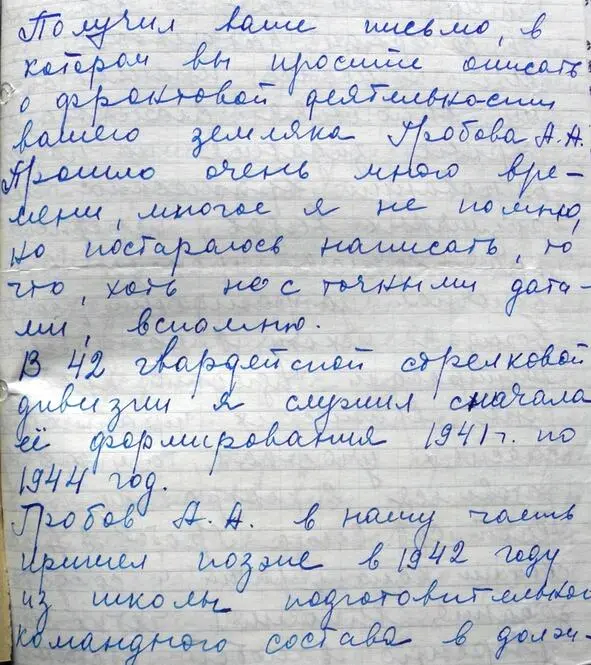 Получил ваше письмо, в
котором вы просите описать
о фронтовой деятельности
вашего земляка Гробова А.А.
Прошло очень много вре-
мени, многое я не помню,
но постараюсь написать, то
что, хоть не с точными дата-
ми, вспомню.
В 42 гвардейской стрелковой
дивизии я служил сначала
её формирования 1941 г. по
1944 год.
Гробов А.А. в нашу часть
пришел позже в 1942 году
из школы подготовительного
командного состава в долж-